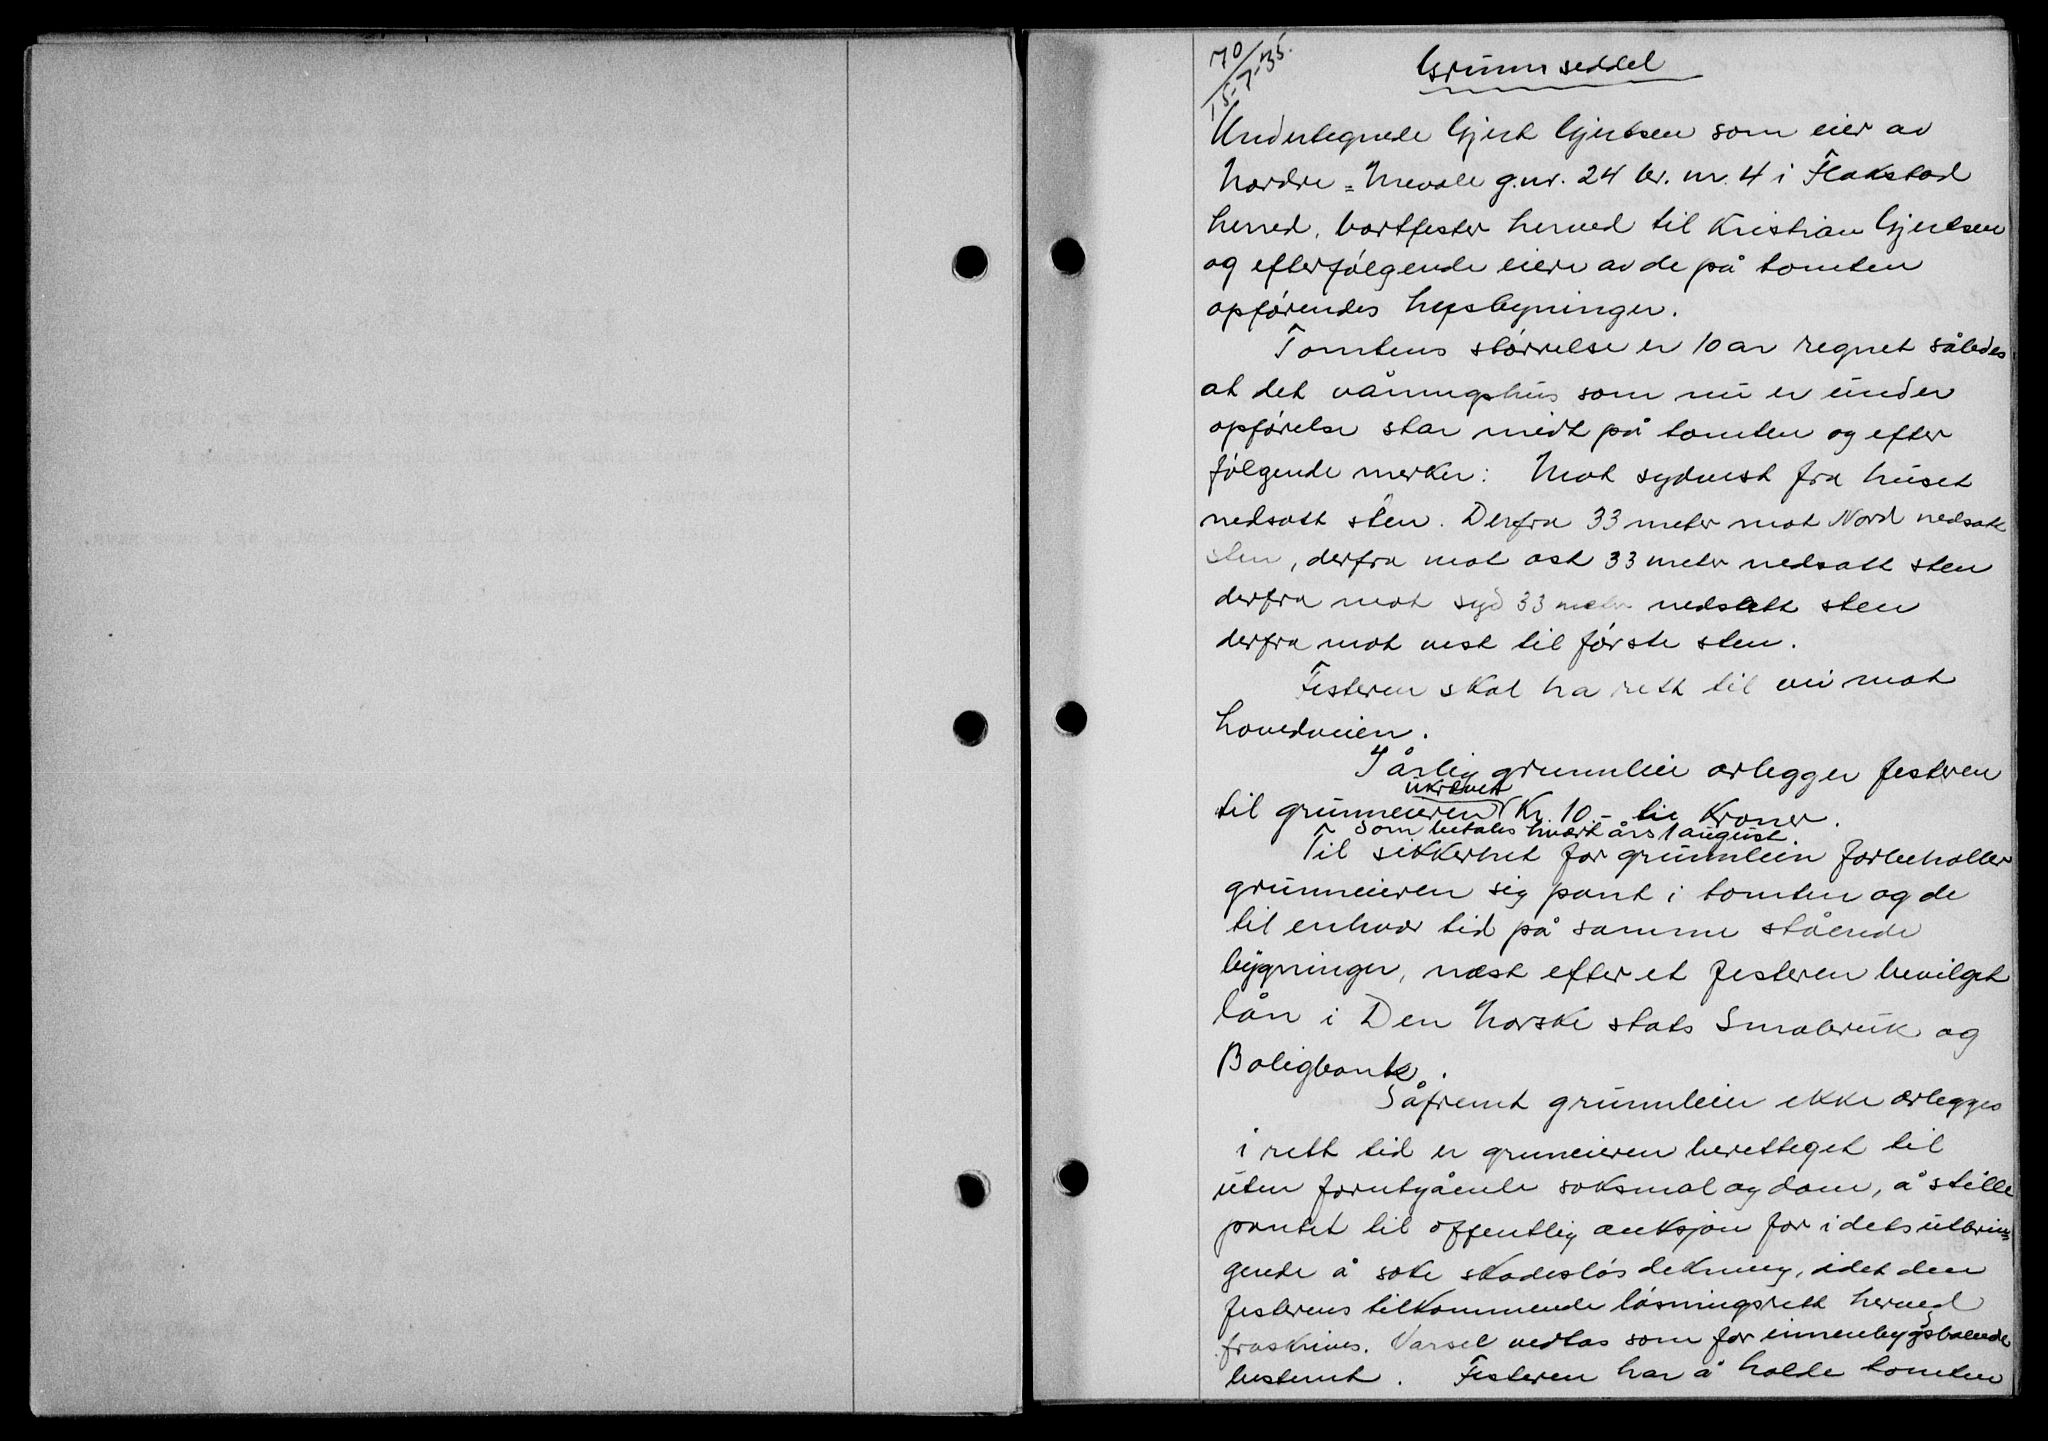 70/15-7-35.
Grunnseddel
Undertegnede Gjert Gjertsen som eier av
Nordre = Mevale g.nr. 24 br. nr. 4 i Flakstad
herred, bortfester herved til Kristian Gjertsen
og efterfølgende eiere av de på tomten
opførendes husbyninger.
Tomtens størrelse er 10 ar regnet således
at det våningshus som nu er under
opførelse star midt på tomten og efter
følgende merker: Mot sydvest fra huset
nedsatt sten. Derfra 33 meter mot Nord nedsatt
sten, derfra mot ost 33 meter nedsatt sten
derfra mot syd 33 meter nedsatt sten
derfra mot vest til første sten.
Festeren skal ha rett til vei mot
hovedveien.
I årlig grunnleie erlegger festeren
til grunneieren ukrævet Kr. 10.- ti Kroner.
som betales hvert års 1 august.
Til sikkerhet for grunnleien forbeholder
grunneieren sig pant i tomten og de
til enhver tid på samme stående
bygninger, næst efter et festeren bevilget
lån i Den Norske stats Smabruk og
Boligbank.
Såfremt grunnleien ikke erlegges
i rett tid er gruneieren berettiget til
uten forutgående soksmal og dom, å stille
pantet til offentlig auksjon for i dets utbrin=
gende å søke skadesløs dekning, idet den
festerens tilkommende løsningsrett herved
fraskrives. Varsel vedtas som for innenbygdsboende
bestemt. Festeren har å holde tomten